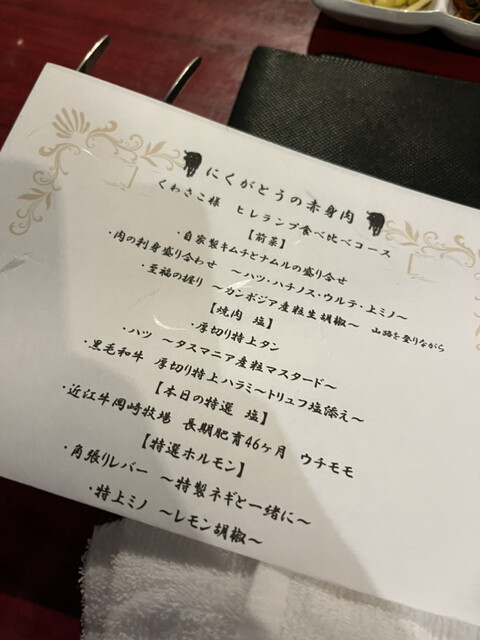 にくがとうの赤身肉
くわさこ様 ヒレランプ食べ比べコース
【前菜】
・自家製キムチとナムルの盛り合せ
・肉の刺身盛り合わせ ～ハツ・ハチノス・ウルテ・上ミノ～
・至福の握り ～カンボジア産粒生胡椒～ 山路を登りながら
【焼肉 塩】
・厚切り特上タン
・ハツ ～タスマニア産粒マスタード～
・黒毛和牛 厚切り特上ハラミ～トリュフ塩添え～
【本日の特選 塩】
・近江牛岡崎牧場 長期肥育46ヶ月 ウチモモ
【特選ホルモン】
・角張りレバー ～特製ネギと一緒に～
・特上ミノ ～レモン胡椒～